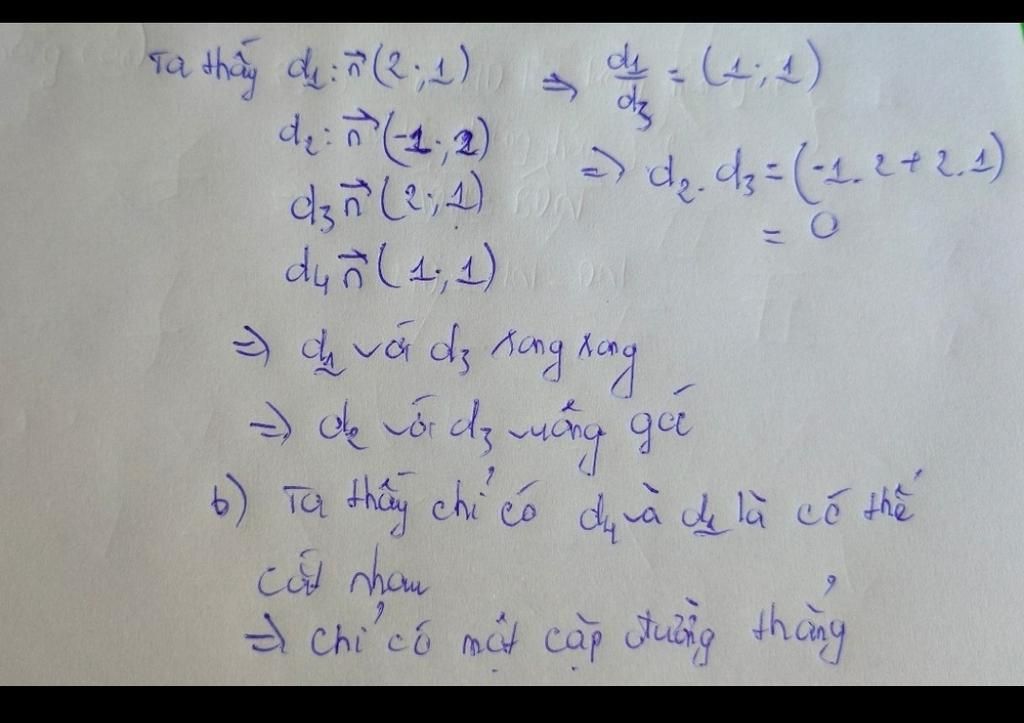 Ta thấy d₁: n⃗(2;1) ⇒ d₁/d₃ = (1;1)
d₂: n⃗(-1;2)
⇒ d₂. d₃ = (-1. 2 + 2.1)
d₃ n⃗(2;1)
= 0
d₄ n⃗(1;1)
⇒ d₁ với d₃ song song
⇒ d₂ với d₃ vuông góc
b) Ta thấy chỉ có d₄ và d₁ là có thể
cắt nhau
⇒ chỉ có một cặp đường thẳng